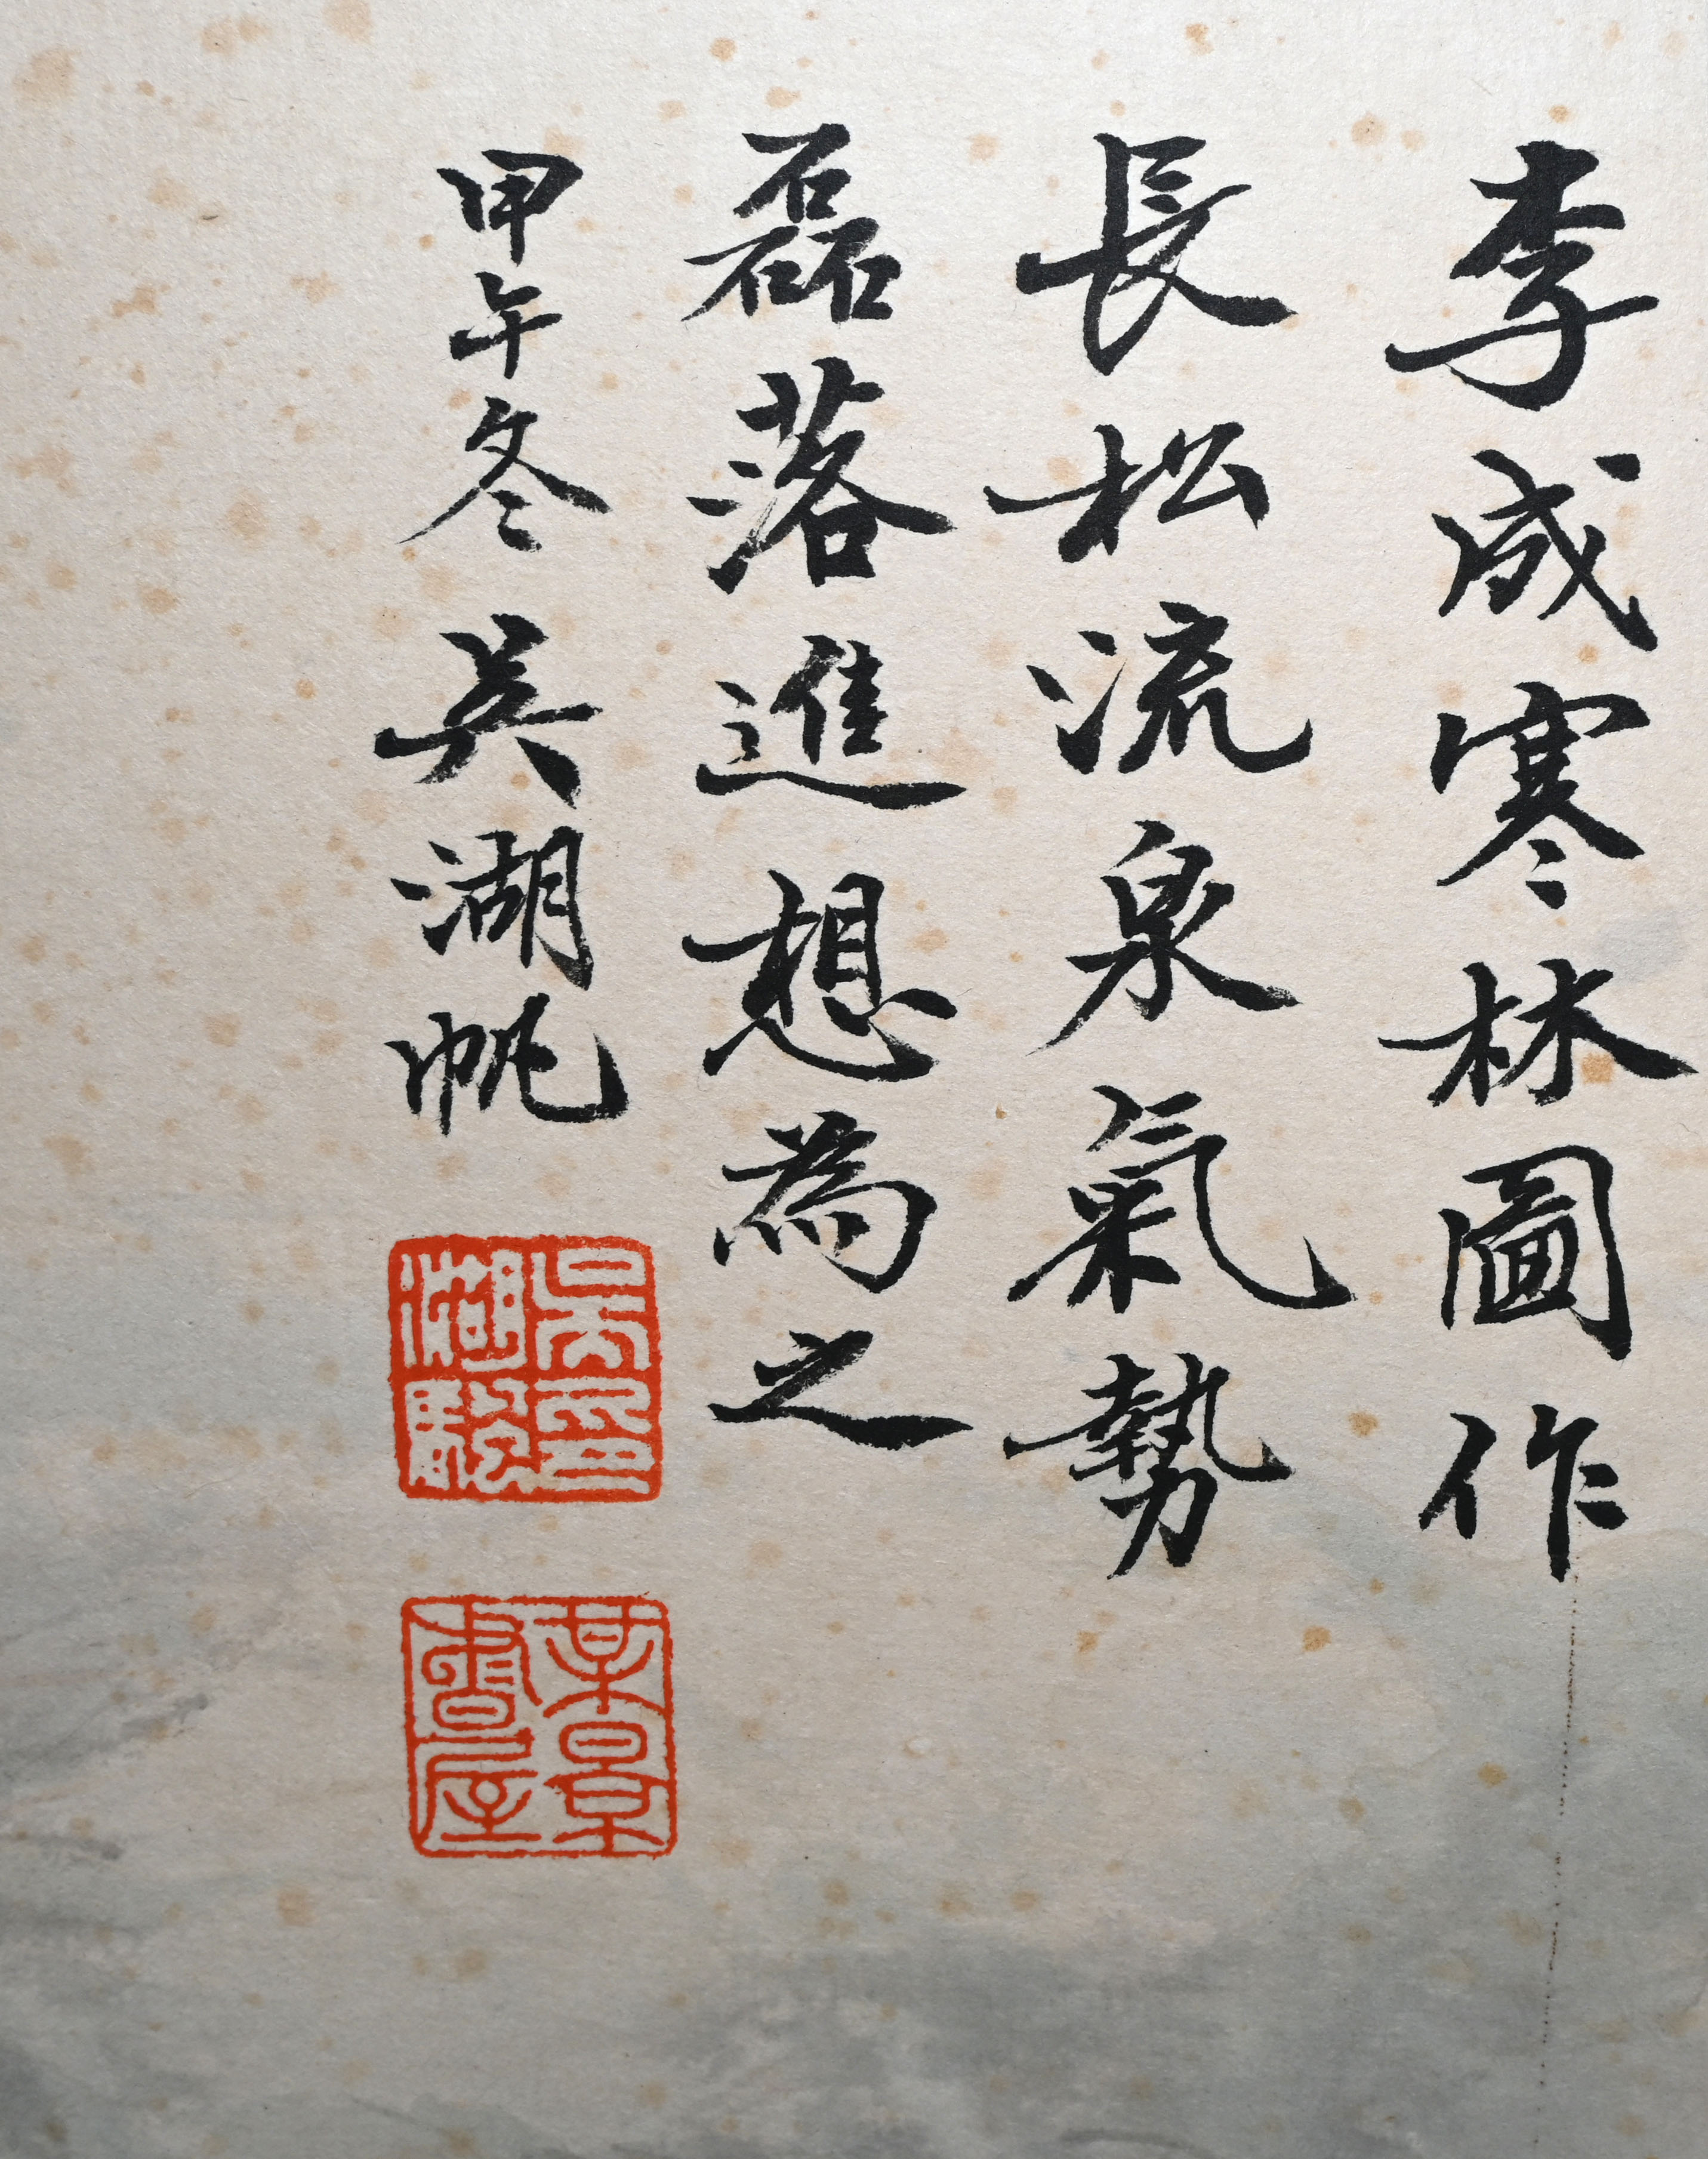 李成寒林圖作
長松流泉氣勢
磊落進想為之
甲午冬吳湖帆
吳印湖颿
某景書屋